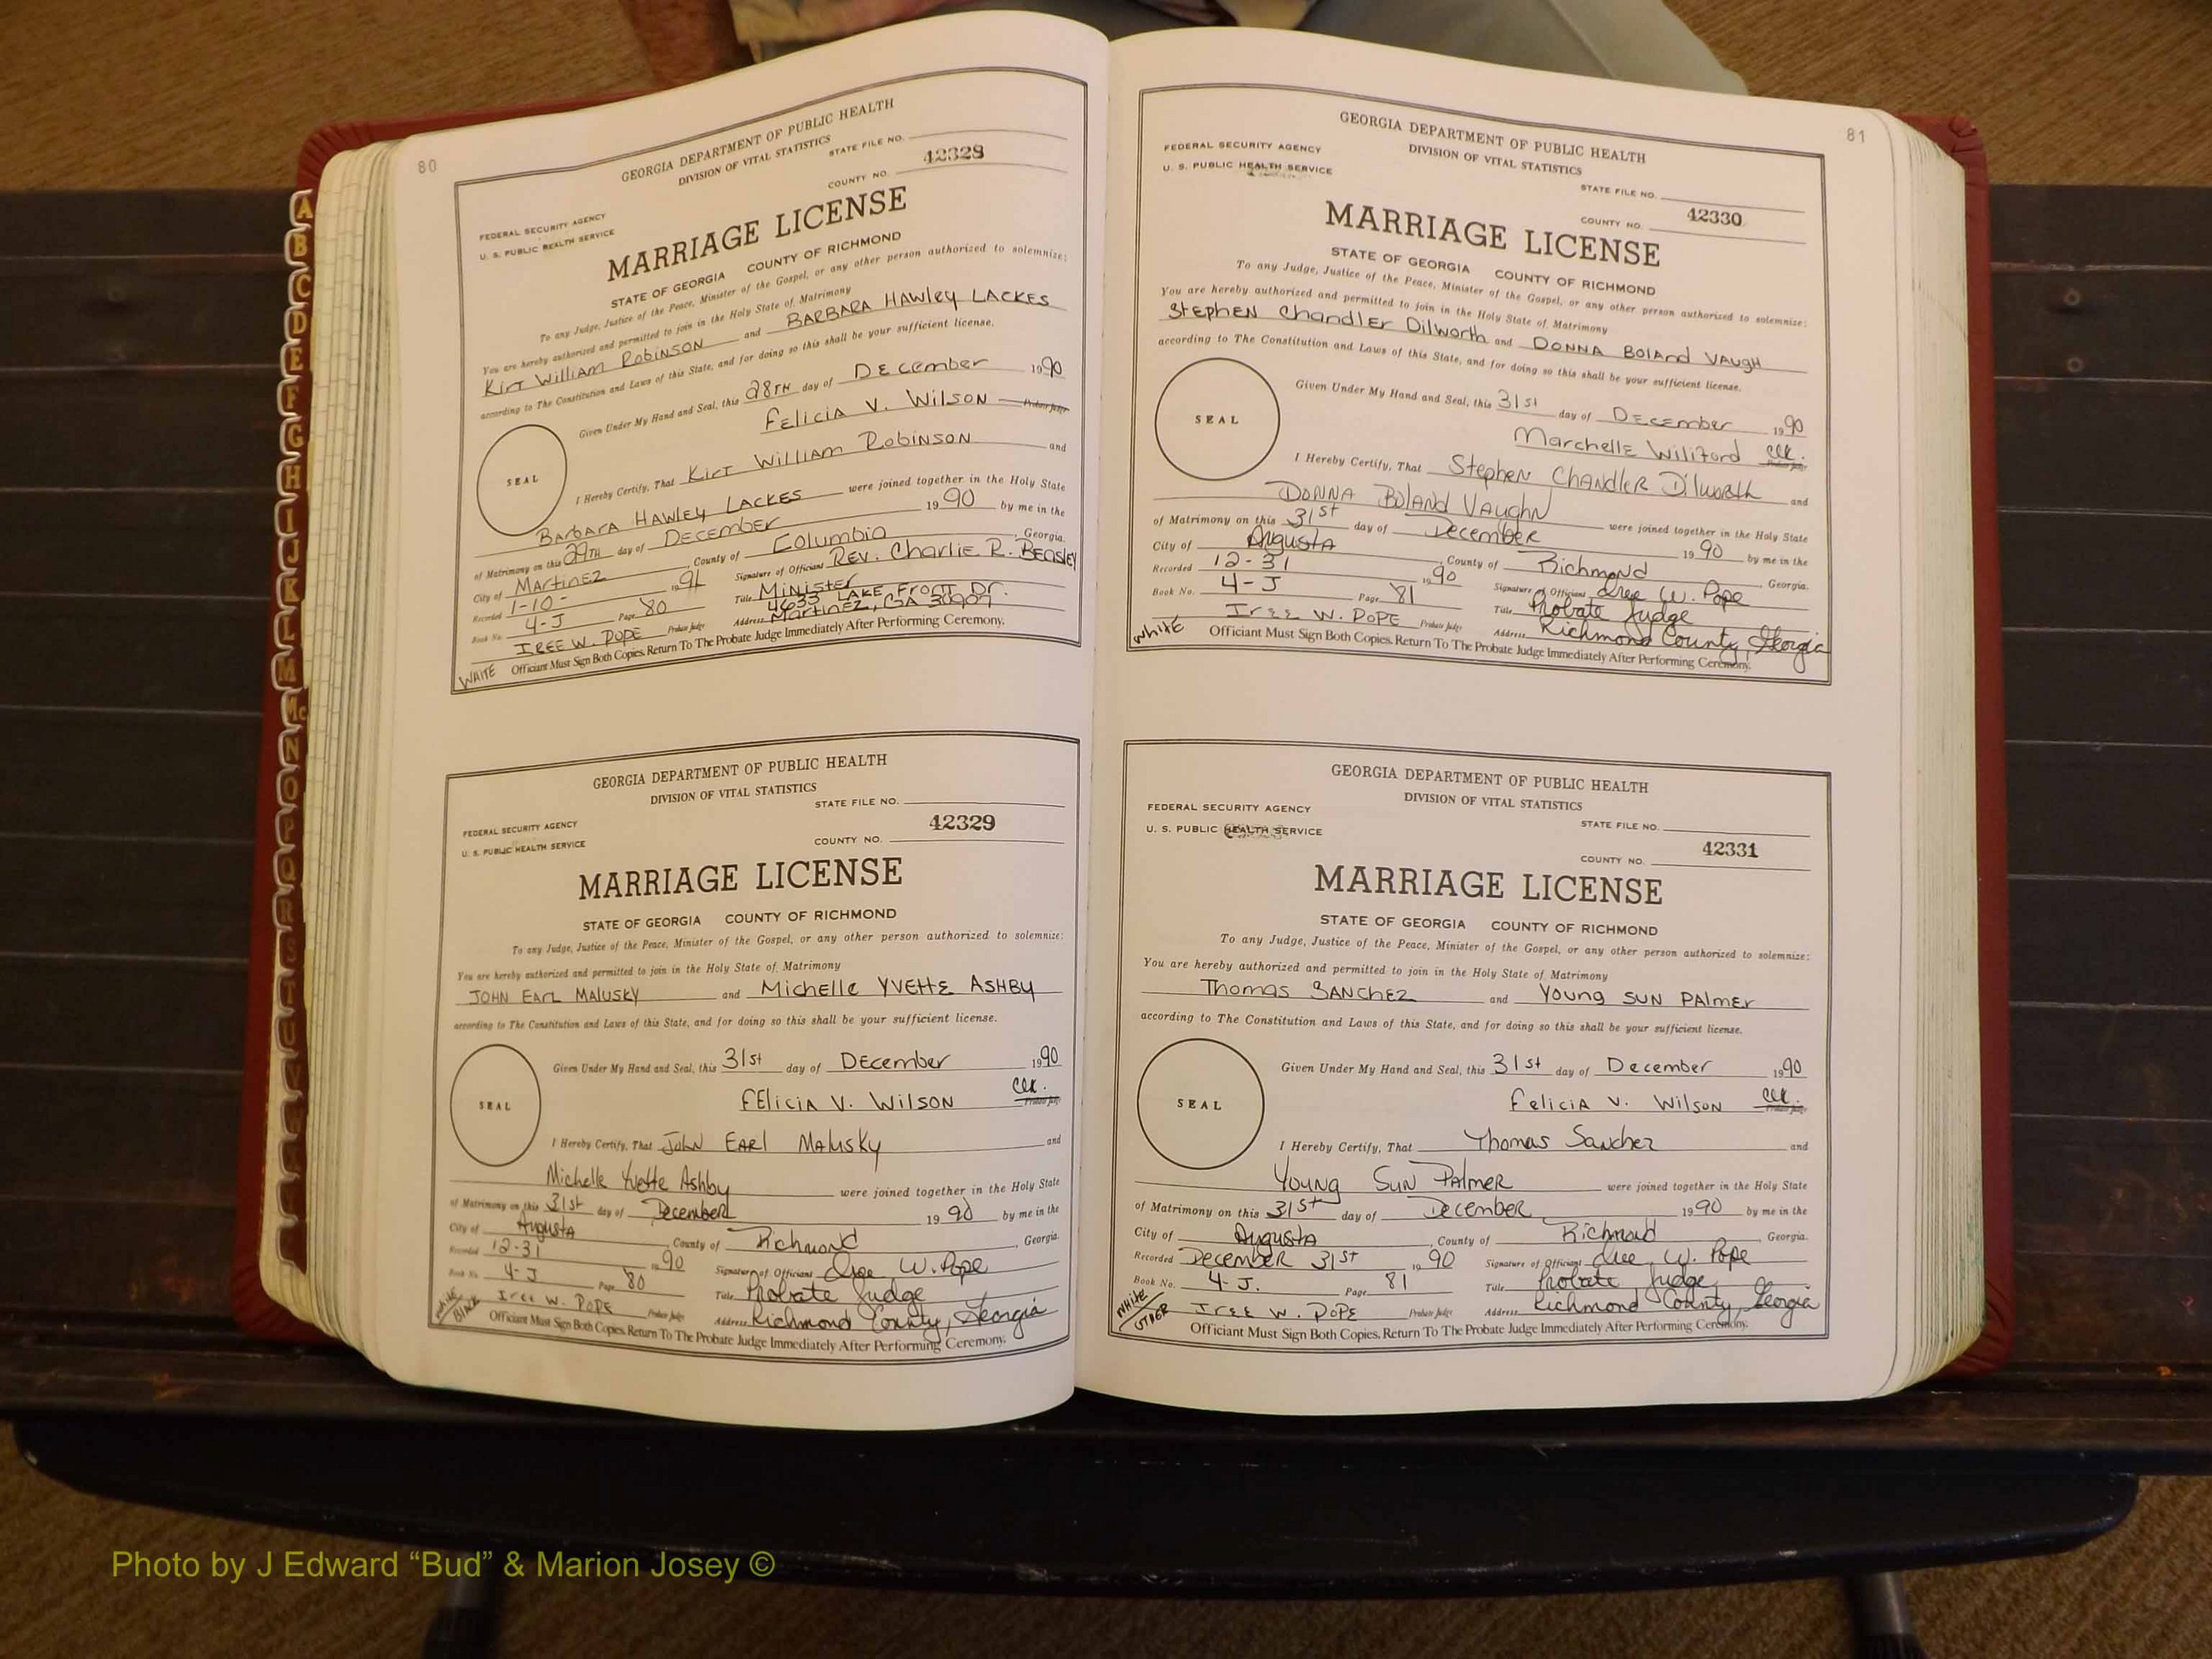 80
GEORGIA DEPARTMENT OF PUBLIC HEALTH
DIVISION OF VITAL STATISTICS
STATE FILE NO.
COUNTY NO. 42328
FEDERAL SECURITY AGENCY
U. S. PUBLIC HEALTH SERVICE
MARRIAGE LICENSE
STATE OF GEORGIA COUNTY OF RICHMOND
To any Judge, Justice of the Peace, Minister of the Gospel, or any other person authorized to solemnize:
You are hereby authorized and permitted to join in the Holy State of Matrimony
Kirt William Robinson and BARBARA HAWLEY LACKES
according to The Constitution and Laws of this State, and for doing so this shall be your sufficient license.
Given Under My Hand and Seal, this 28TH day of DECEMBER 1990
FELICIA V. WILSON Probate Judge
SEAL
I Hereby Certify, That Kirt William Robinson and
Barbara Hawley LACKES were joined together in the Holy State
of Matrimony on this 29TH day of DECEMBER 1990 by me in the
City of MARTINEZ, County of Columbia, Georgia.
Recorded 1-10- 1991 Signature of Officiant Rev. Charlie R. Beasley
Book No. 4-J Page 80 Title Minister
4633 LAKE Front Dr.
IREE W. POPE Probate Judge Address Martinez, GA 30907
WHITE Officiant Must Sign Both Copies. Return To The Probate Judge Immediately After Performing Ceremony.
GEORGIA DEPARTMENT OF PUBLIC HEALTH
DIVISION OF VITAL STATISTICS
STATE FILE NO.
FEDERAL SECURITY AGENCY
U. S. PUBLIC HEALTH SERVICE
COUNTY NO. 42329
MARRIAGE LICENSE
STATE OF GEORGIA COUNTY OF RICHMOND
To any Judge, Justice of the Peace, Minister of the Gospel, or any other person authorized to solemnize:
You are hereby authorized and permitted to join in the Holy State of Matrimony
JOHN EARL MALUSKY and Michelle YVETTE ASHBY
according to The Constitution and Laws of this State, and for doing so this shall be your sufficient license.
Given Under My Hand and Seal, this 31st day of DECEMBER 1990
FELICIA V. WILSON Clk. Probate Judge
SEAL
I Hereby Certify, That John Earl Malusky and
Michelle Yvette Ashby were joined together in the Holy State
of Matrimony on this 31st day of December 1990 by me in the
City of Augusta, County of Richmond, Georgia.
Recorded 12-31 1990 Signature of Officiant Iree W. Pope
Book No. 4-J Page 80 Title Probate Judge
Iree W. POPE Probate Judge Address Richmond County, Georgia
White/BLACK Officiant Must Sign Both Copies. Return To The Probate Judge Immediately After Performing Ceremony.
81
GEORGIA DEPARTMENT OF PUBLIC HEALTH
DIVISION OF VITAL STATISTICS
FEDERAL SECURITY AGENCY
U. S. PUBLIC HEALTH SERVICE
STATE FILE NO.
COUNTY NO. 42330
MARRIAGE LICENSE
STATE OF GEORGIA COUNTY OF RICHMOND
To any Judge, Justice of the Peace, Minister of the Gospel, or any other person authorized to solemnize:
You are hereby authorized and permitted to join in the Holy State of Matrimony
Stephen Chandler Dilworth and DONNA BOLAND VAUGH
according to The Constitution and Laws of this State, and for doing so this shall be your sufficient license.
Given Under My Hand and Seal, this 31st day of DECEMBER 1990
Marchelle Wiliford Clk. Probate Judge
SEAL
I Hereby Certify, That Stephen Chandler Dilworth and
Donna Boland Vaughn were joined together in the Holy State
of Matrimony on this 31st day of December 1990 by me in the
City of Augusta, County of Richmond, Georgia.
Recorded 12-31 1990 Signature of Officiant Iree W. Pope
Book No. 4-J Page 81 Title Probate Judge
Iree W. POPE Probate Judge Address Richmond County, Georgia
White Officiant Must Sign Both Copies. Return To The Probate Judge Immediately After Performing Ceremony.
GEORGIA DEPARTMENT OF PUBLIC HEALTH
DIVISION OF VITAL STATISTICS
FEDERAL SECURITY AGENCY
U. S. PUBLIC HEALTH SERVICE
STATE FILE NO.
COUNTY NO. 42331
MARRIAGE LICENSE
STATE OF GEORGIA COUNTY OF RICHMOND
To any Judge, Justice of the Peace, Minister of the Gospel, or any other person authorized to solemnize:
You are hereby authorized and permitted to join in the Holy State of Matrimony
Thomas SANCHEZ and Young SUN PALMER
according to The Constitution and Laws of this State, and for doing so this shall be your sufficient license.
Given Under My Hand and Seal, this 31st day of December 1990
Felicia V. Wilson Clk. Probate Judge
SEAL
I Hereby Certify, That Thomas Sanchez and
Young Sun Palmer were joined together in the Holy State
of Matrimony on this 31st day of December 1990 by me in the
City of Augusta, County of Richmond, Georgia.
Recorded December 31st 1990 Signature of Officiant Iree W. Pope
Book No. 4-J. Page 81 Title Probate Judge
Iree W. POPE Probate Judge Address Richmond County, Georgia
White/OTHER Officiant Must Sign Both Copies. Return To The Probate Judge Immediately After Performing Ceremony.
A
B
C
D
E
F
G
H
I
J
K
L
M
Mc
N
O
P
Q
R
S
T
U
V
Photo by J Edward “Bud” & Marion Josey ©